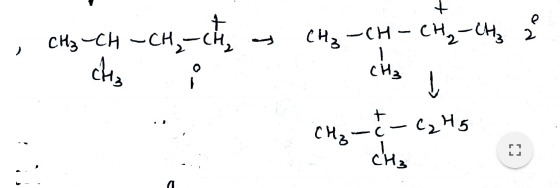 , CH₃-CH-CH₂-CH₂⁺ → CH₃-CH-CH₂⁺-CH₃ 2°
CH₃ 1° CH₃
↓
CH₃-C⁺-C₂H₅
CH₃